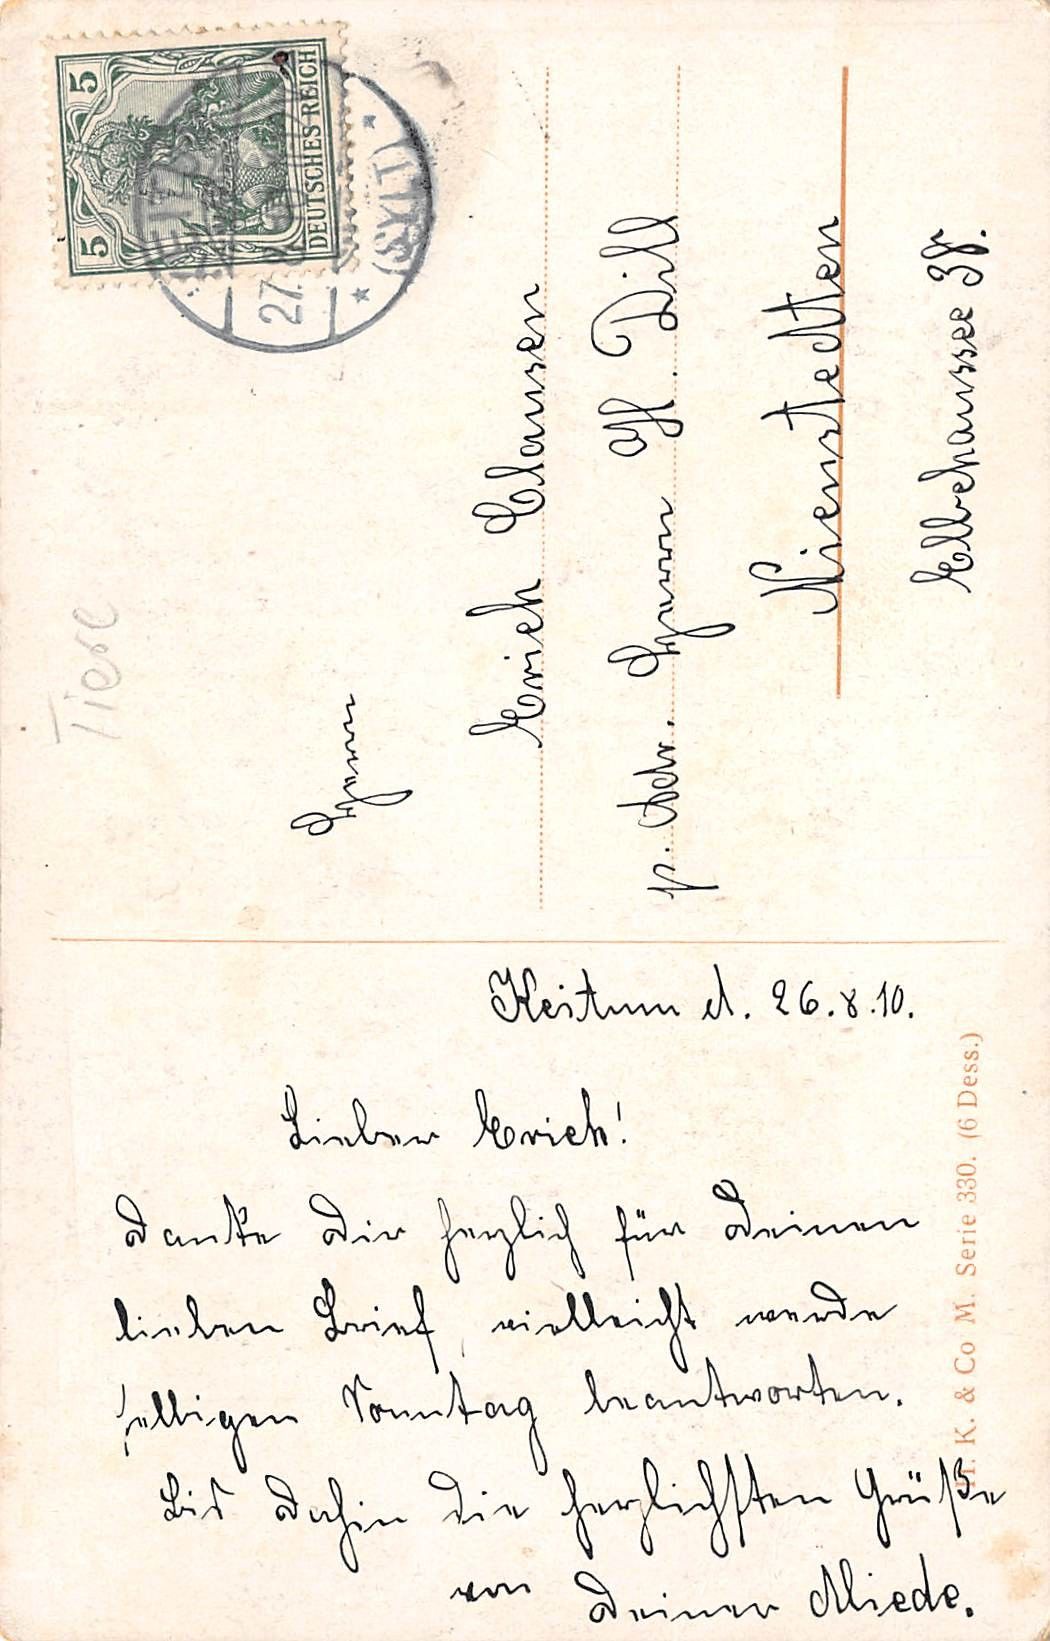 5
5
DEUTSCHES REICH
27.
(SYLT)
* *
Tiere
Herrn
Erich Clausen
p. Adr. Herrn H. Dill
Nienstedten
Elbchaussee 38.
Keitum d. 26.8.10.
Lieber Erich!
Danke Dir herzlich für Deinen
lieben Brief, vielleicht werde
selbigen Sonntag beantworten.
Bis dahin die herzlichsten Grüße
von Deiner Miede.
H. K. & Co M. Serie 330. (6 Dess.)